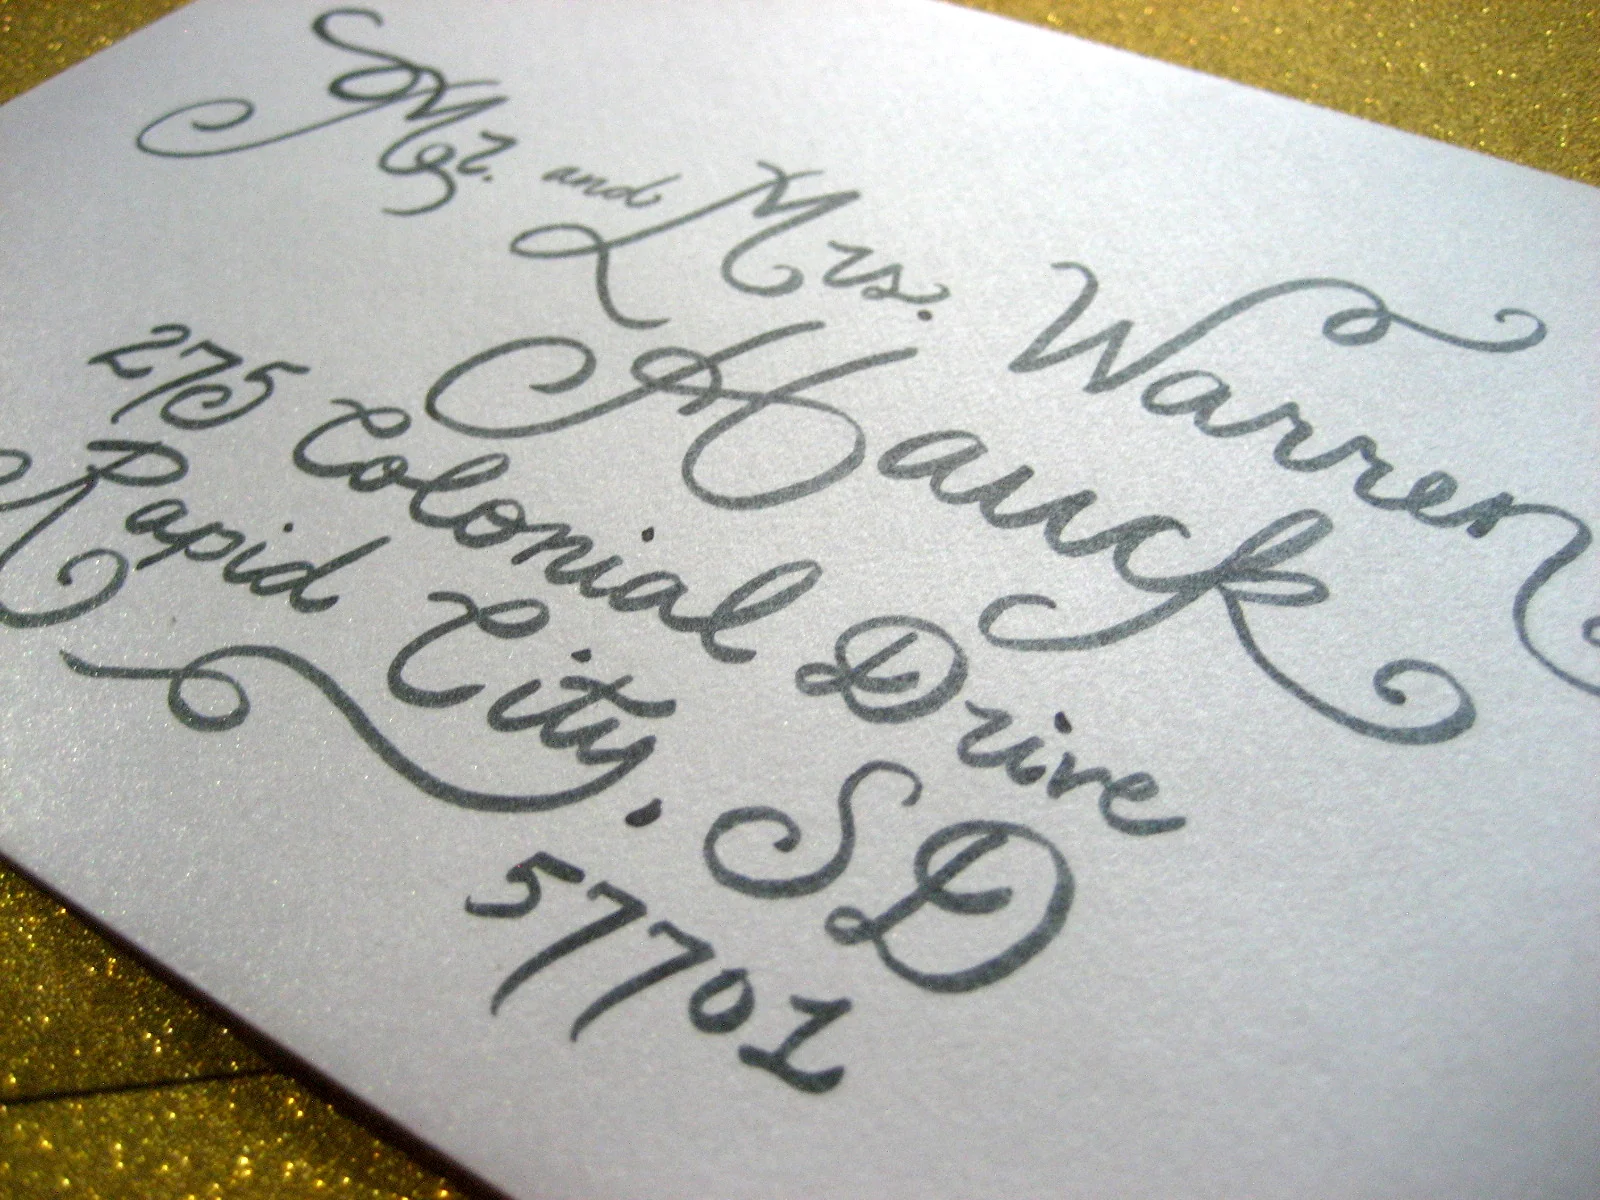 Mr. and Mrs. Warren
Hauck
275 Colonial Drive
Rapid City, SD
57701